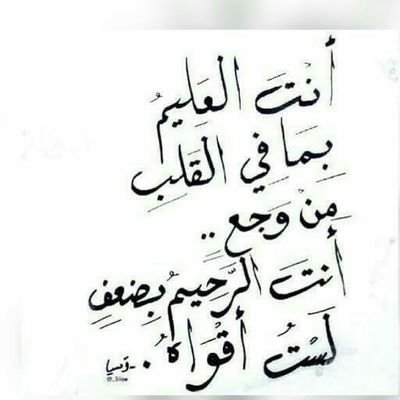 أَنْتَ العَلِيمُ
بِمَا فِي القَلبِ
مِنْ وَجعٍ ..
أنتَ الرَّحِيمُ بِضعفٍ
لَستُ أقْوَاهُ .